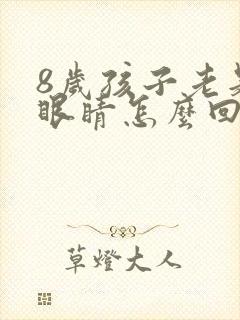 8歲孩子老是
眼睛怎麼回
草燈大人